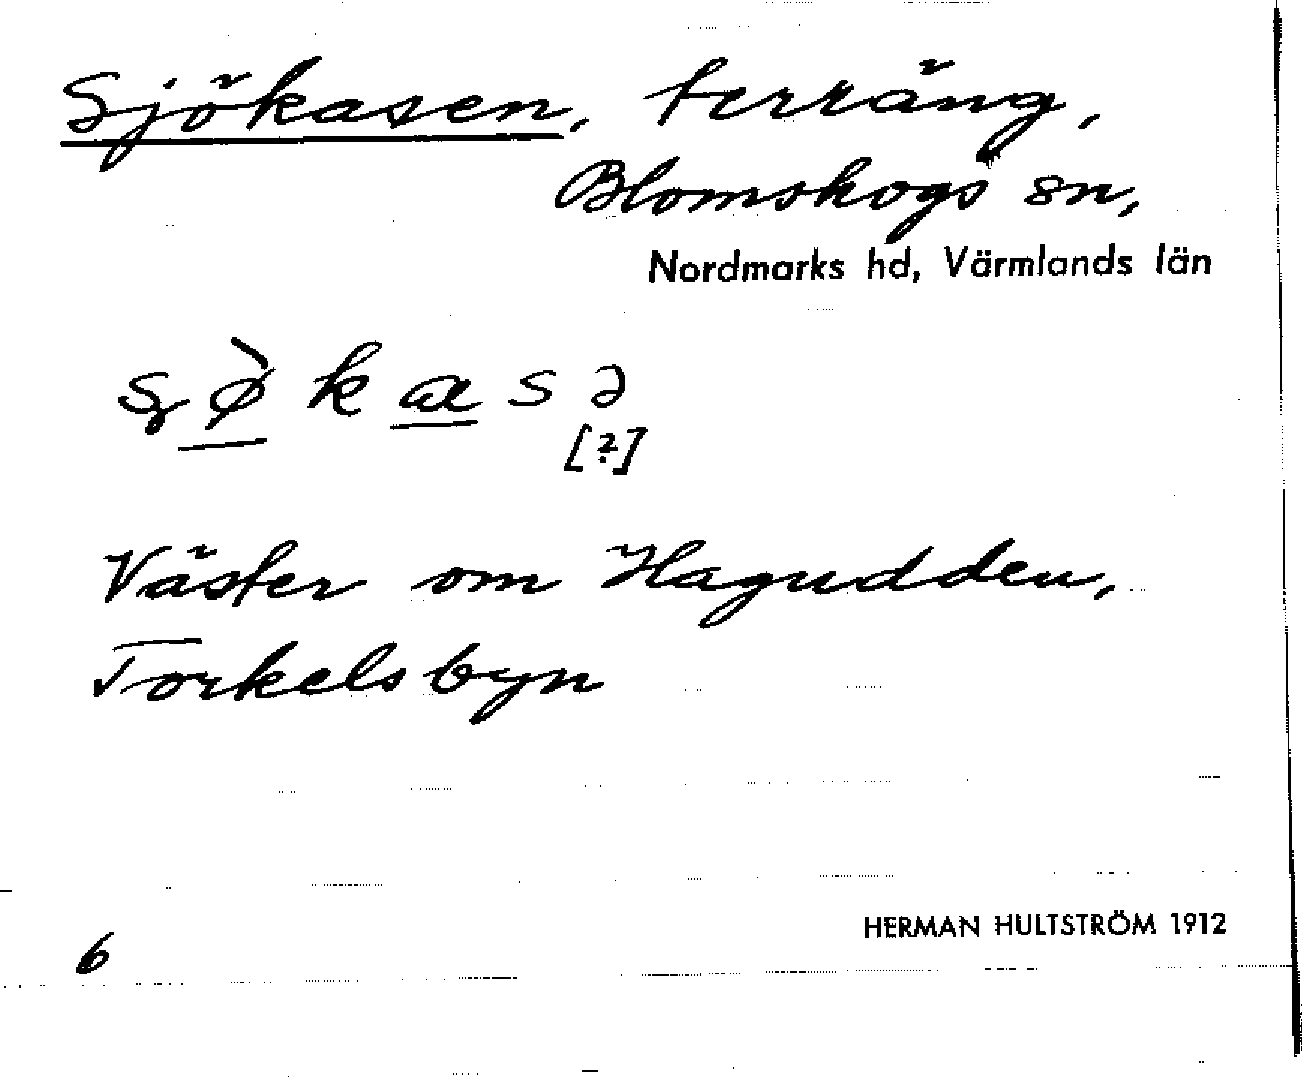 Sjökasen, terräng,
Blomskogs sn,
Nordmarks hd, Värmlands län
ʂø̀kasə
[?]
Väster om Hagudden,
Torkelsbyn
HERMAN HULTSTRÖM 1912
6